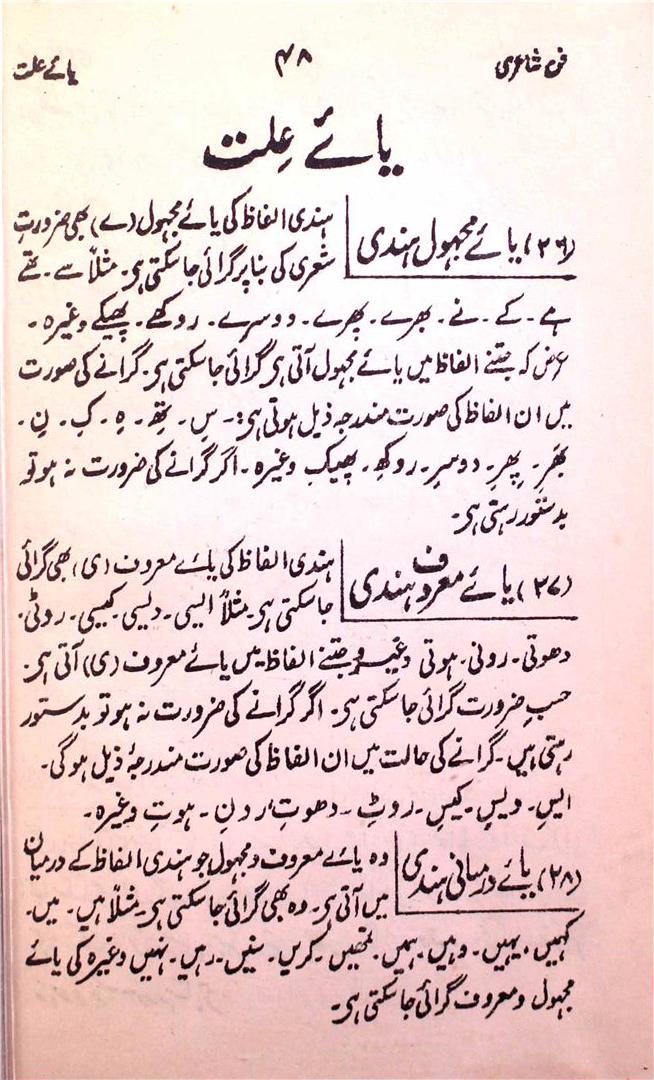 فن شاعری
۴۸
یائے علت
یائے عِلت
(۲۶) یائے مجہول ہندی
ہندی الفاظ کی یائے مجہول (ے) بھی ضرورتِ
شعری کی بنا پر گرائی جا سکتی ہی۔ مثلاً سے۔ تھے
ہے۔ کے۔ نے۔ بھرے۔ پھرے۔ دوسرے۔ روکھے۔ پھیکے وغیرہ۔
غرض کہ جتنے الفاظ میں یائے مجہول آتی ہی گرائی جا سکتی ہی۔ گرانے کی صورت
میں ان الفاظ کی صورت مندرجہ ذیل ہوتی ہی:۔ سِ۔ تھِ۔ ہِ۔ کِ۔ نِ۔
بھَرِ۔ پھِرِ۔ دوسرِ۔ روکھِ۔ پھیکِ وغیرہ۔ اگر گرانے کی ضرورت نہ ہو تو
بدستور رہتی ہی۔
(۲۷) یائے معروف ہندی
ہندی الفاظ کی یائے معروف (ی) بھی گرائی
جا سکتی ہی۔ مثلاً ایسی۔ ویسی۔ کیسی۔ روٹی۔
دھوتی۔ رونی۔ ہوتی وغیرہ جتنے الفاظ میں یائے معروف (ی) آتی ہی۔
حسبِ ضرورت گرائی جا سکتی ہی۔ اگر گرانے کی ضرورت نہ ہو تو بدستور
رہتی ہیں۔ گرانے کی حالت میں ان الفاظ کی صورت مندرجۂ ذیل ہوگی۔
ایسِ۔ ویسِ۔ کیسِ۔ روٹِ۔ دھوتِ۔ رونِ۔ ہوتِ وغیرہ۔
(۲۸) یائے درمیانی ہندی
وہ یائے معروف و مجہول جو ہندی الفاظ کے درمیان
میں آتی ہی۔ وہ بھی گرائی جا سکتی ہی۔ مثلاً ہیں۔ میں۔
کہیں۔ یہیں۔ وہیں۔ ہمیں۔ تمھیں۔ کریں۔ سنیں۔ رہیں۔ نہیں وغیرہ کی یائے
مجہول و معروف گرائی جا سکتی ہی۔